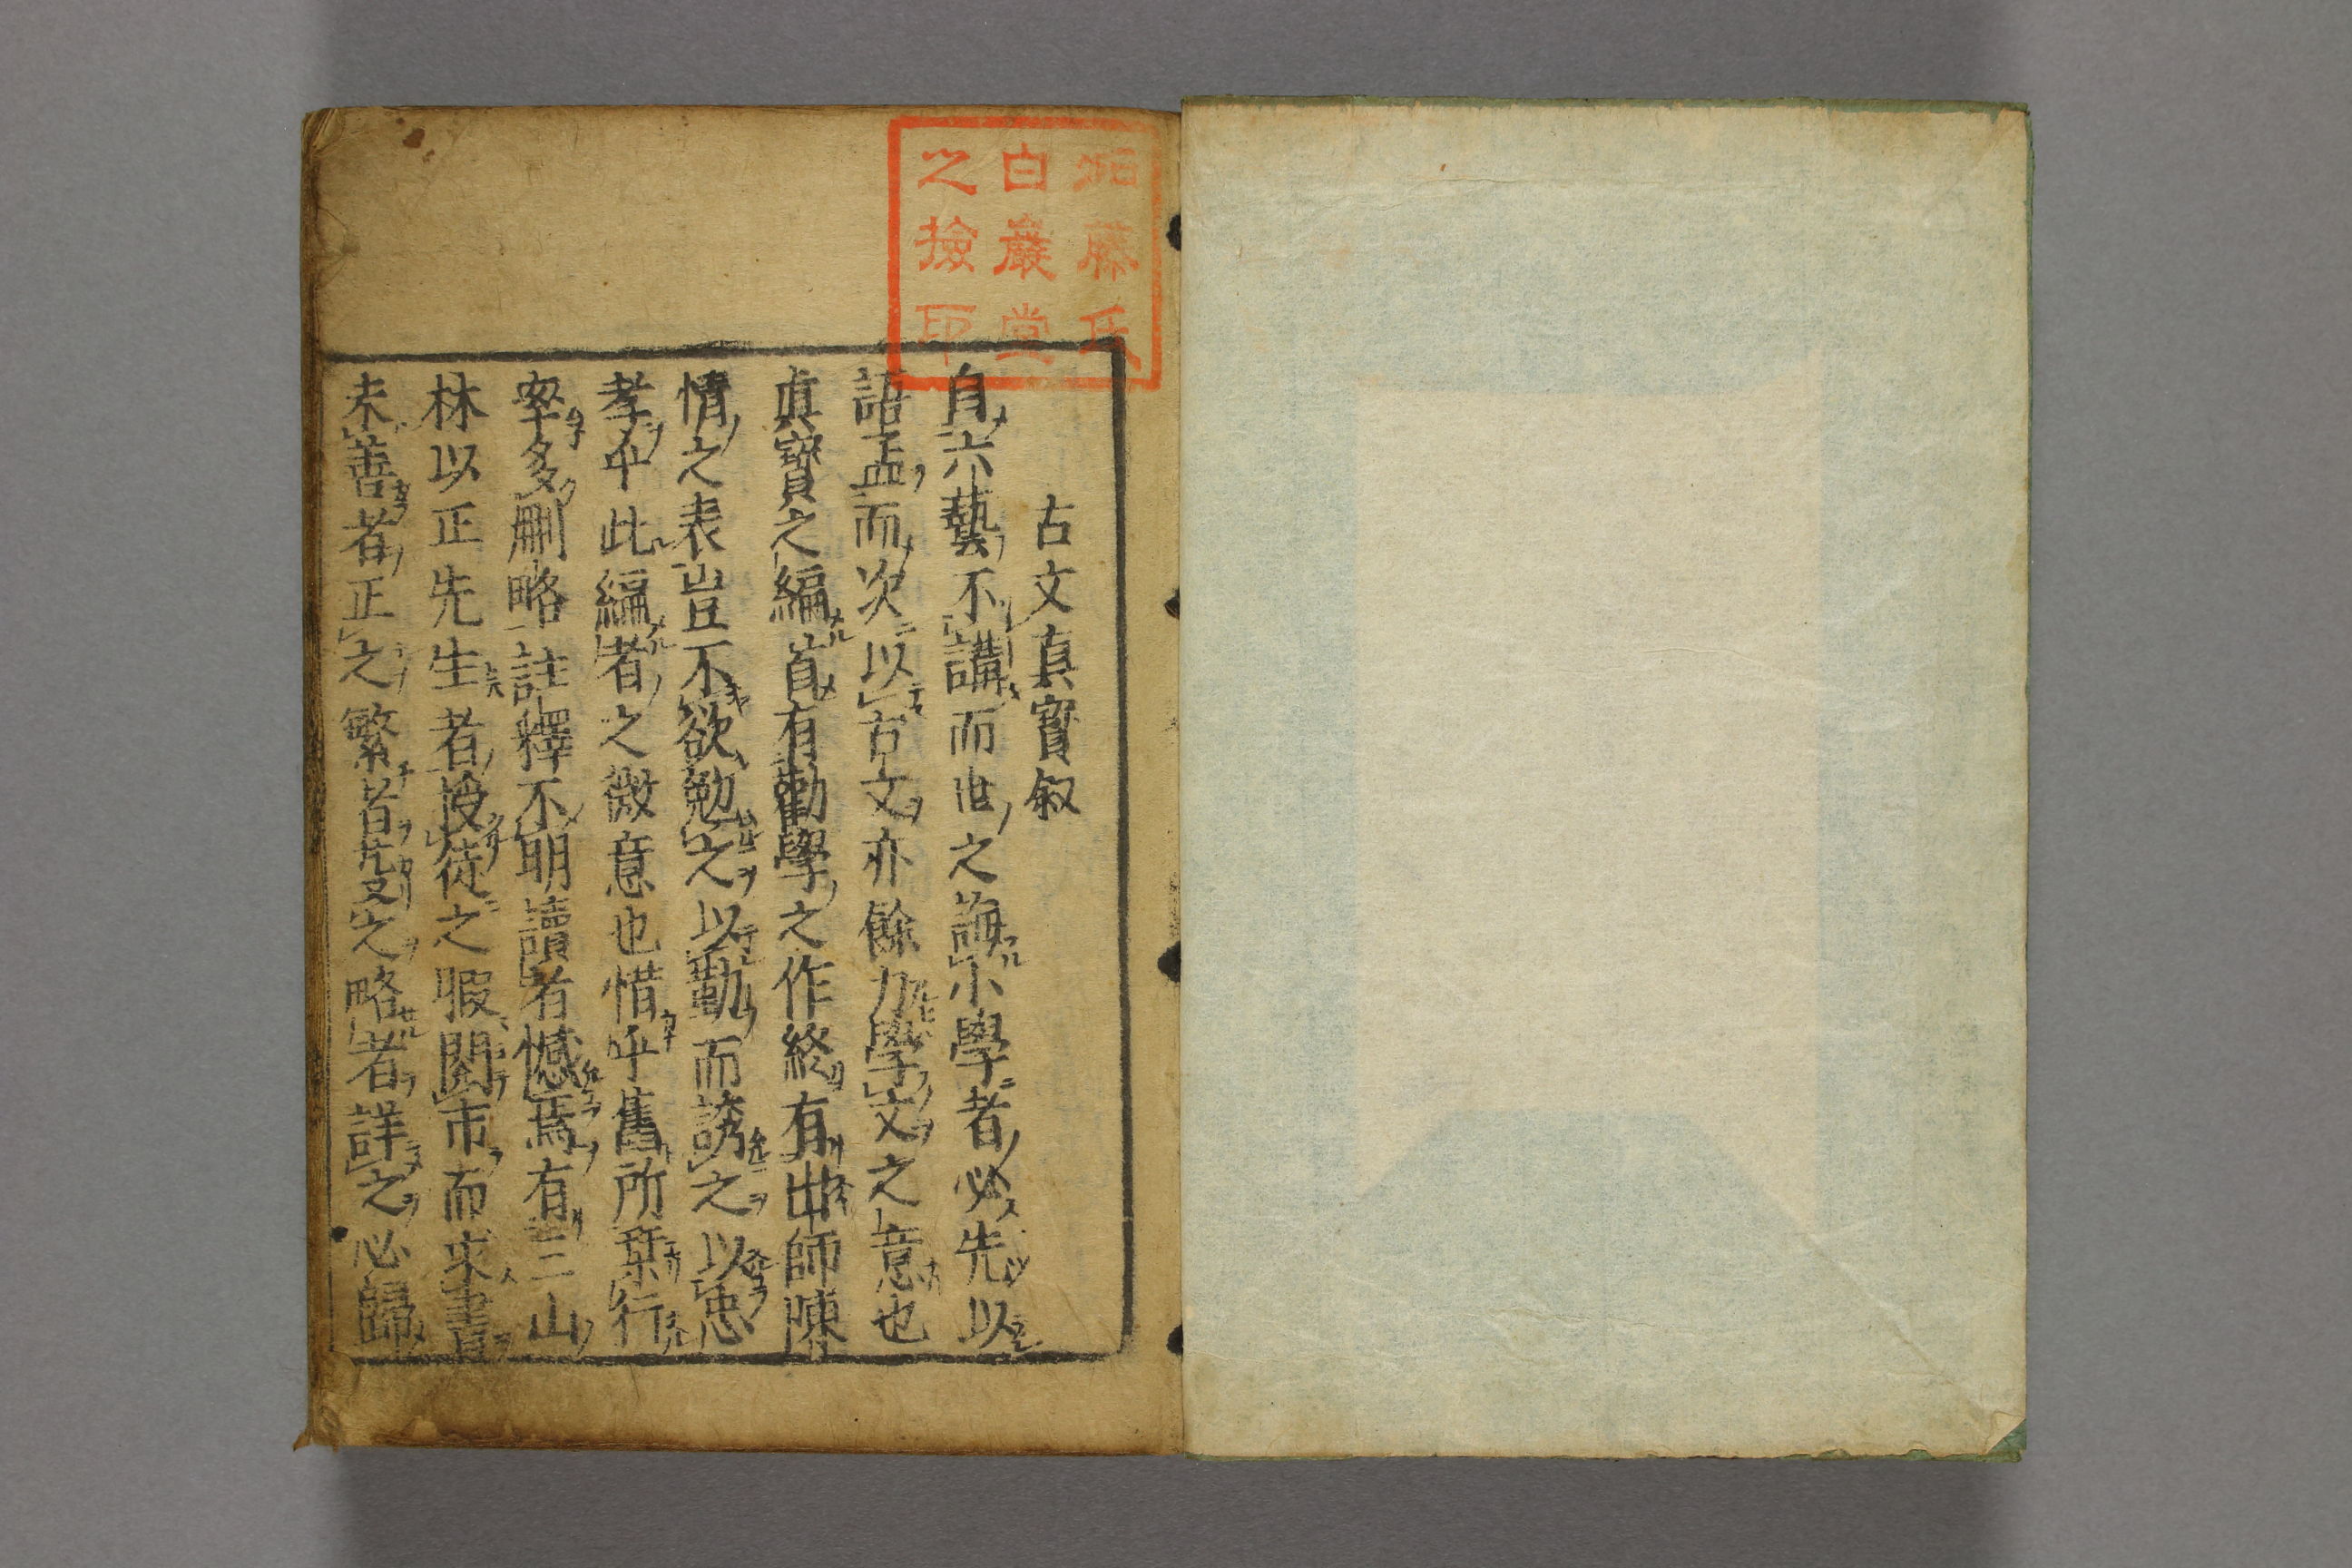 藤氏
白巖堂
之撿印
古文真寳叙
自六藝不講而世之誨小學者必先以
語孟而次以古文亦餘力學文之意也
眞寳之編首有勸學之作終有出師陳
情之表豈不欲勉之以勤而誘之以忠
孝乎此編者之微意也惜乎舊所栞行
率多刪略註釋不明讀者憾焉有三山
林以正先生者授徒之暇閲市而求書
未善者正之繁者芟之略者詳之必歸